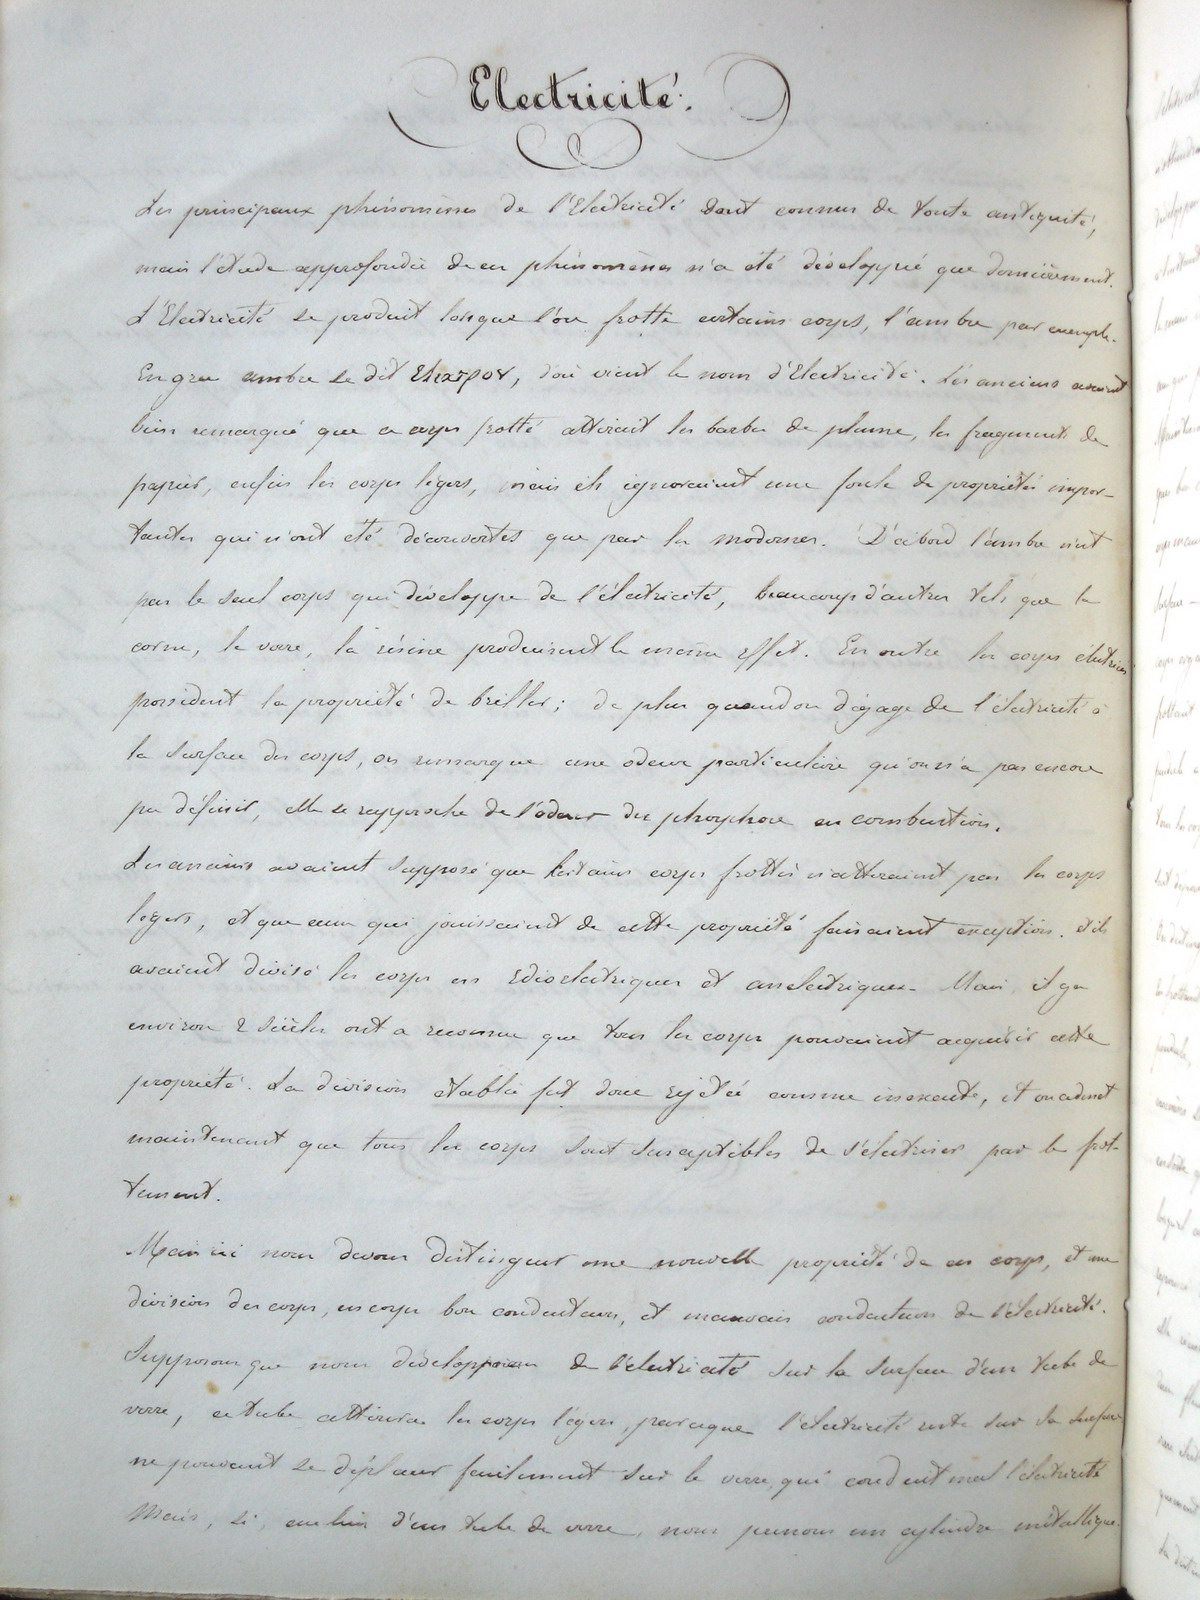 Electricité.
Les principaux phénomènes de l'Electricité sont connus de toute antiquité,
mais l'étude approfondie de ces phénomènes n'a été développé que dernièrement.
L'Electricité se produit lorsque l'on frotte certains corps, l'ambre par exemple.
En grec ambre se dit ελεκτρον, d'où vient le nom d'Electricité. Les anciens avaient
bien remarqué que ce corps frotté attirait les barbes de plume, les fragments de
papier, enfin les corps légers, mais ils ignoraient une foule de propriétés impor-
tantes qui n'ont été découvertes que par les modernes. D'abord l'ambre n'est
pas le seul corps qui développe de l'électricité, beaucoup d'autres tels que la
corne, le verre, la résine produisent le même effet. En outre les corps électrisés
possèdent la propriété de briller; de plus quand on dégage de l'électricité à
la surface des corps, on remarque une odeur particulière qu'on n'a pas encore
pu définir, elle se rapproche de l'odeur du phosphore en combustion.
Les anciens avaient supposé que certains corps frottés n'attiraient pas les corps
légers, et que ceux qui jouissaient de cette propriété faisaient exception. et ils
avaient divisé les corps en idioelectriques et anelectriques. Mais, il y a
environ 2 siècles ont a reconnu que tous les corps pouvaient acquérir cette
propriété. La division établie fut donc rejetée comme inexacte, et on admet
maintenant que tous les corps sont susceptibles de s'électriser par le frot-
tement.
Mais ici nous devons distinguer une nouvelle propriété de ces corps, et une
division des corps, en corps bon conducteurs, et mauvais conducteurs de l'électricité.
Supposons que nous développions de l'électricité sur la surface d'un tube de
verre, ce tube attirera les corps légers, parceque l'électricité reste sur sa surface
ne pouvant se déplacer facilement sur le verre, qui conduit mal l'électricité
Mais, si, au lieu d'un tube de verre, nous prenons un cylindre métallique